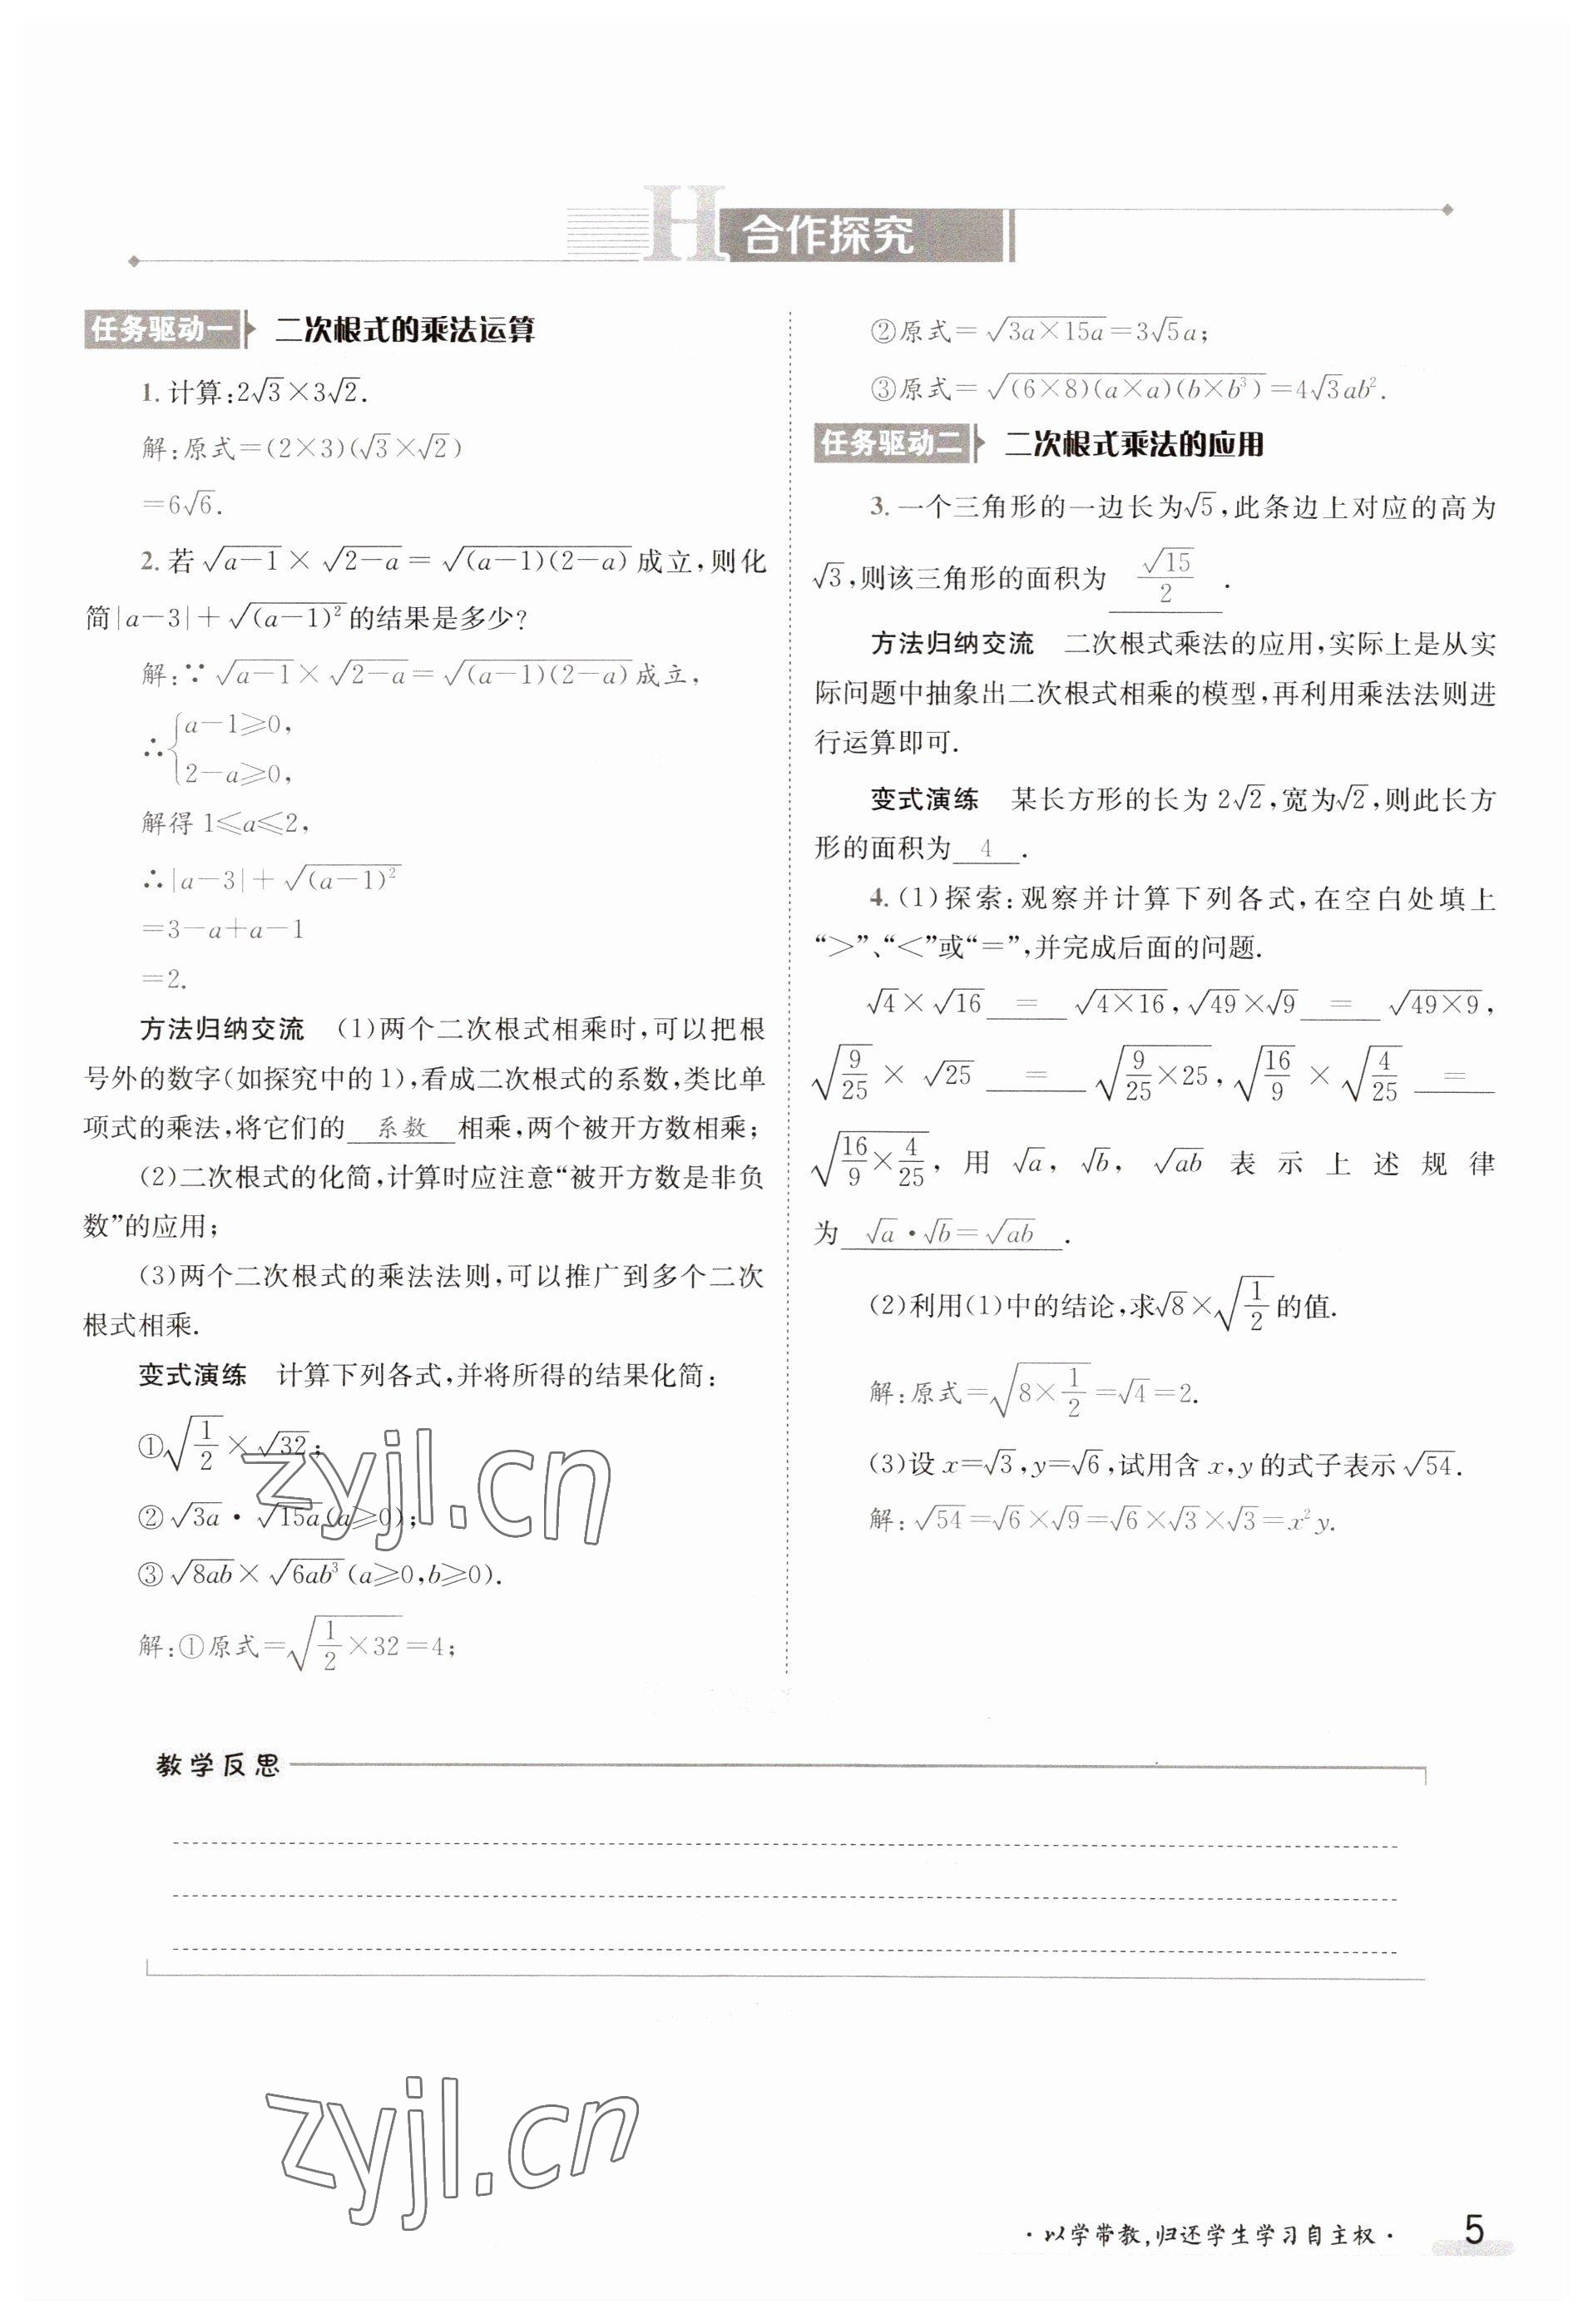 H 合作探究
任务驱动一 二次根式的乘法运算
1. 计算:2√3×3√2.
解:原式=(2×3)(√3×√2)
=6√6.
2. 若√(a-1)×√(2-a)=√((a-1)(2-a))成立,则化
简|a-3|+√((a-1)²)的结果是多少?
解:∵√(a-1)×√(2-a)=√((a-1)(2-a))成立,
∴{a-1≥0,
2-a≥0,
解得1≤a≤2,
∴|a-3|+√((a-1)²)
=3-a+a-1
=2.
方法归纳交流 (1)两个二次根式相乘时,可以把根
号外的数字(如探究中的1),看成二次根式的系数,类比单
项式的乘法,将它们的 系数 相乘,两个被开方数相乘;
(2)二次根式的化简,计算时应注意“被开方数是非负
数”的应用;
(3)两个二次根式的乘法法则,可以推广到多个二次
根式相乘.
变式演练 计算下列各式,并将所得的结果化简:
①√(1/2)×√32;
②√(3a)·√(15a)(a≥0);
③√(8ab)×√(6ab³)(a≥0,b≥0).
解:①原式=√(1/2×32)=4;
②原式=√(3a×15a)=3√5a;
③原式=√((6×8)(a×a)(b×b³))=4√3ab².
任务驱动二 二次根式乘法的应用
3. 一个三角形的一边长为√5,此条边上对应的高为
√3,则该三角形的面积为 √15/2 .
方法归纳交流 二次根式乘法的应用,实际上是从实
际问题中抽象出二次根式相乘的模型,再利用乘法法则进
行运算即可.
变式演练 某长方形的长为2√2,宽为√2,则此长方
形的面积为 4 .
4. (1)探索:观察并计算下列各式,在空白处填上
“>”、“<”或“=”,并完成后面的问题.
√4×√16 = √(4×16),√49×√9 = √(49×9),
√(9/25)×√25 = √(9/25×25),√(16/9)×√(4/25) =
√(16/9×4/25),用√a,√b,√(ab)表示上述规律
为 √a·√b=√(ab) .
(2)利用(1)中的结论,求√8×√(1/2)的值.
解:原式=√(8×1/2)=√4=2.
(3)设x=√3,y=√6,试用含x,y的式子表示√54.
解:√54=√6×√9=√6×√3×√3=x²y.
zyjl.cn
教学反思
zyjl.cn
·以学带教,归还学生学习自主权· 5